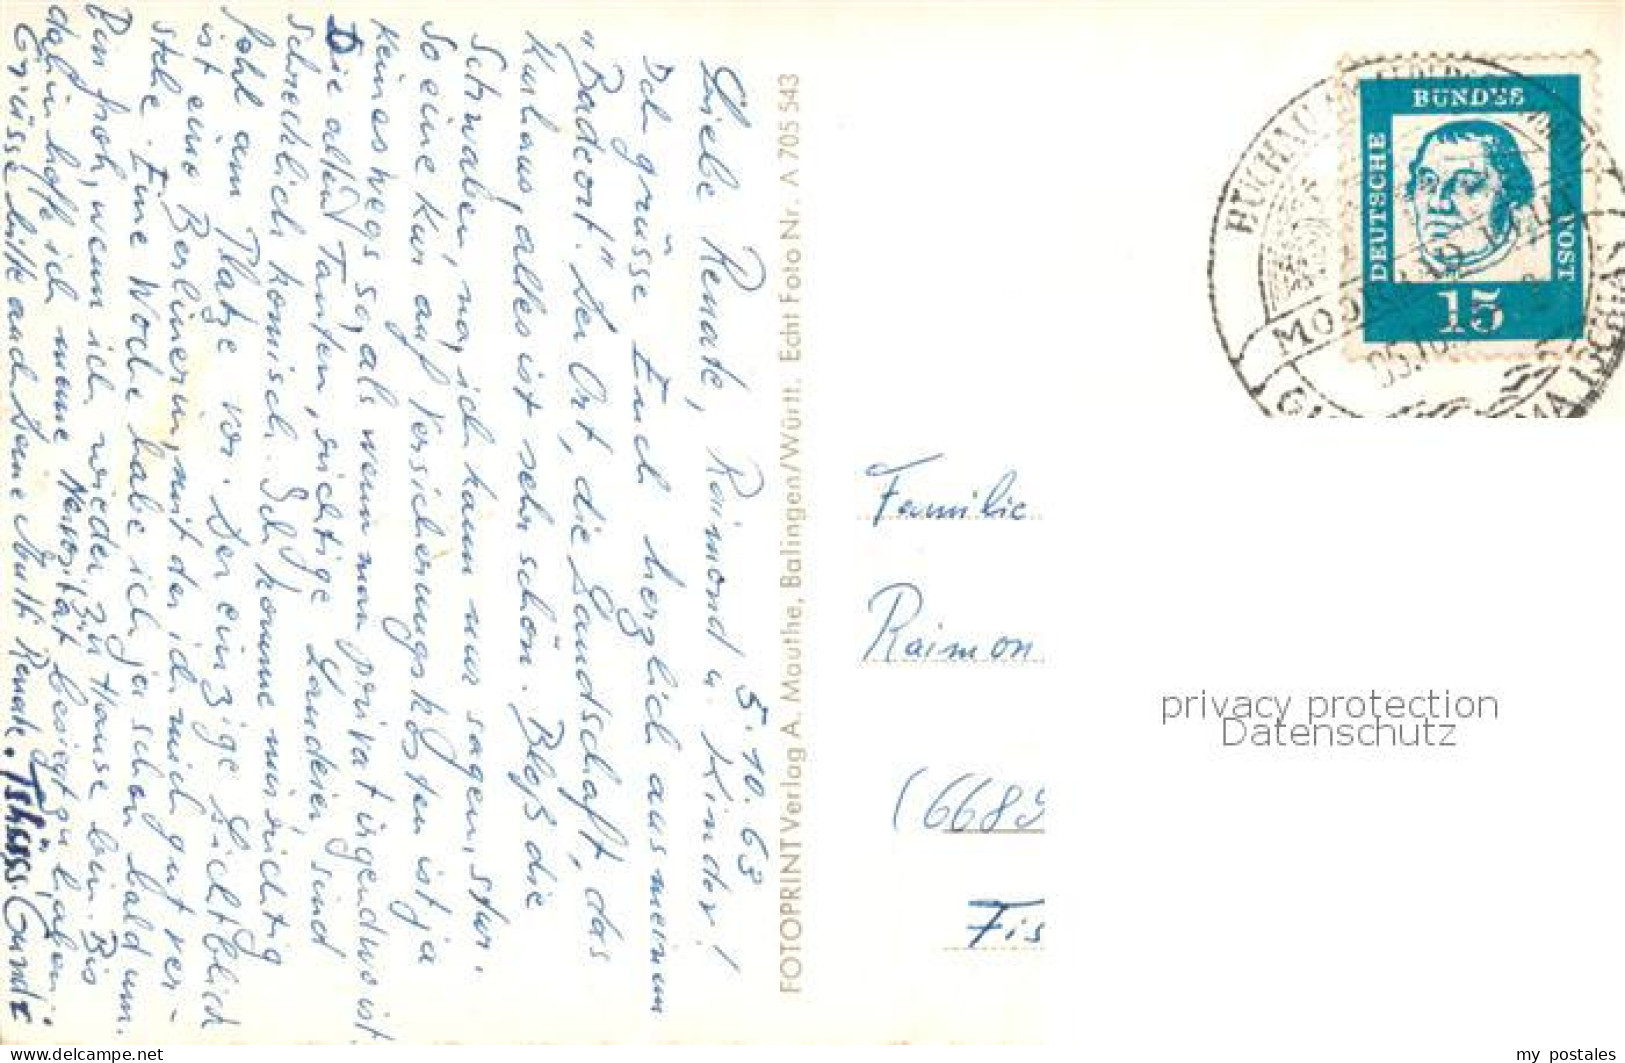 5.10.63
Liebe Renate, Raimond u. Kinder!
Ich grüsse Euch herzlich aus meinem
"Badeort". Der Ort, die Landschaft, das
Kurhaus, alles ist sehr schön. Bloß die
Schwaben, na, ich kann nur sagen, stur.
So eine Kur auf Versicherungskosten ist ja
keineswegs so, als wenn man privat irgendwo ist.
Die alten Tanten, richtige Landeier, sind
schrecklich komisch. Ich komme mir richtig
wohl am Platze vor. Der einzige Lichtblick
ist eine Berlinerin, mit der ich mich gut ver-
stehe. Eine Woche habe ich ja schon bald um.
Bin froh, wenn ich wieder zu Hause bin. Bis
dahin hoffe ich meine Nervosität besiegt zu haben.
Grüsse bitte auch Deine Mutti Renate. Tshüss. Gunde
FOTOPRINT Verlag A. Mauthe, Balingen/Württ. Echt Foto Nr. A 705 543
BUCHAU
MOORBAD
05.10.
DEUTSCHE
BUNDES
POST
15
Familie
Raimon
(6689
Fis
privacy protection
Datenschutz
www.delcampe.net
my_postales